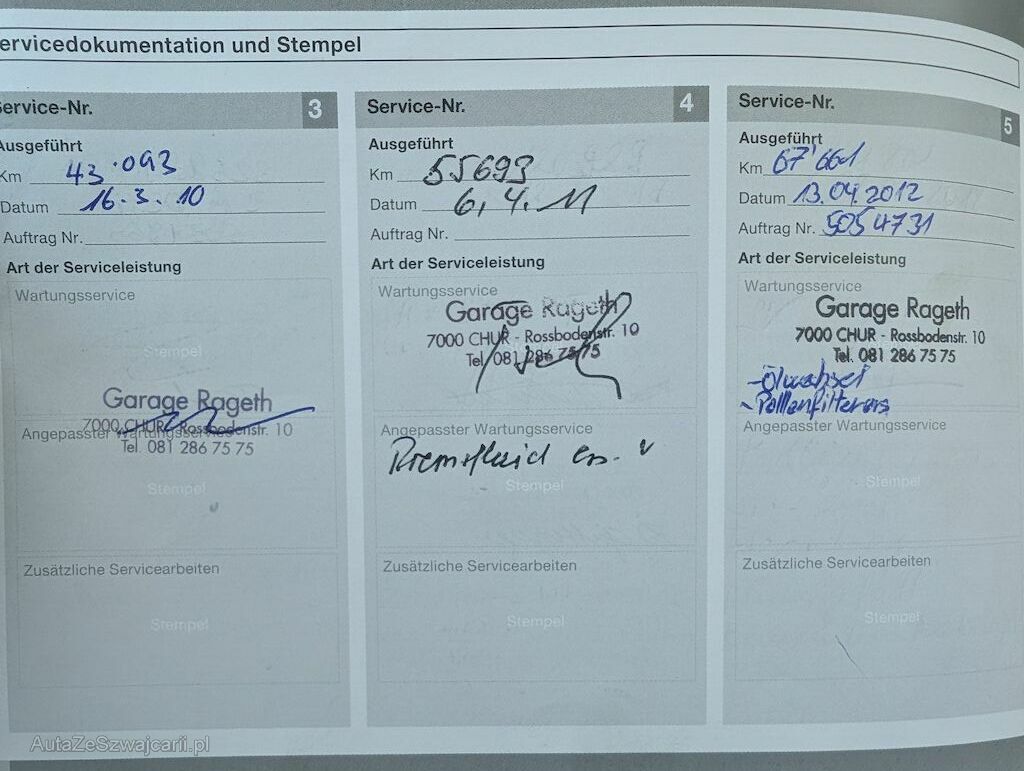 ervicedokumentation und Stempel
Service-Nr. 3
Ausgeführt
Km 43.093
Datum 16.3.10
Auftrag Nr.
Art der Serviceleistung
Wartungsservice
Stempel
Garage Rageth
7000 CHUR - Rossbodenstr. 10
Angepasster Wartungsservice
Tel. 081 286 75 75
Stempel
Zusätzliche Servicearbeiten
Stempel
Service-Nr. 4
Ausgeführt
Km 55693
Datum 6.4.11
Auftrag Nr.
Art der Serviceleistung
Wartungsservice
Garage Rageth
7000 CHUR - Rossbodenstr. 10
Tel. 081 286 75 75
Angepasster Wartungsservice
Bremsfluid ers.
Stempel
Zusätzliche Servicearbeiten
Stempel
Service-Nr. 5
Ausgeführt
Km 67'661
Datum 13.04.2012
Auftrag Nr. 5054731
Art der Serviceleistung
Wartungsservice
Garage Rageth
7000 CHUR - Rossbodenstr. 10
Tel. 081 286 75 75
- Ölwechsel
- Pollenfilter ers
Angepasster Wartungsservice
Stempel
Zusätzliche Servicearbeiten
Stempel
AutaZeSzwajcarii.pl